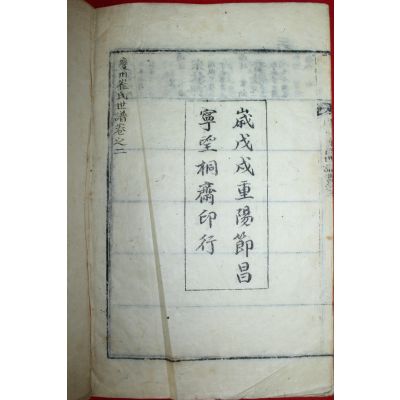 歲戊戌重陽節昌
寧望桐齋印行
慶州崔氏世譜卷之二